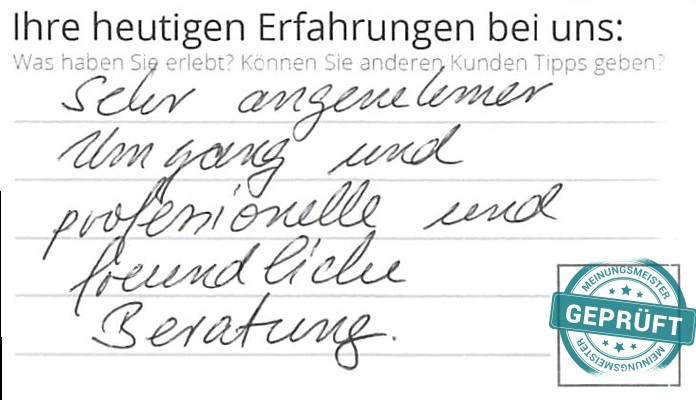 Ihre heutigen Erfahrungen bei uns:
Was haben Sie erlebt? Können Sie anderen Kunden Tipps geben?
Sehr angenehmer
Umgang und
professionelle und
freundliche
Beratung.
MEINUNGSMEISTER
GEPRÜFT
MEINUNGSMEISTER